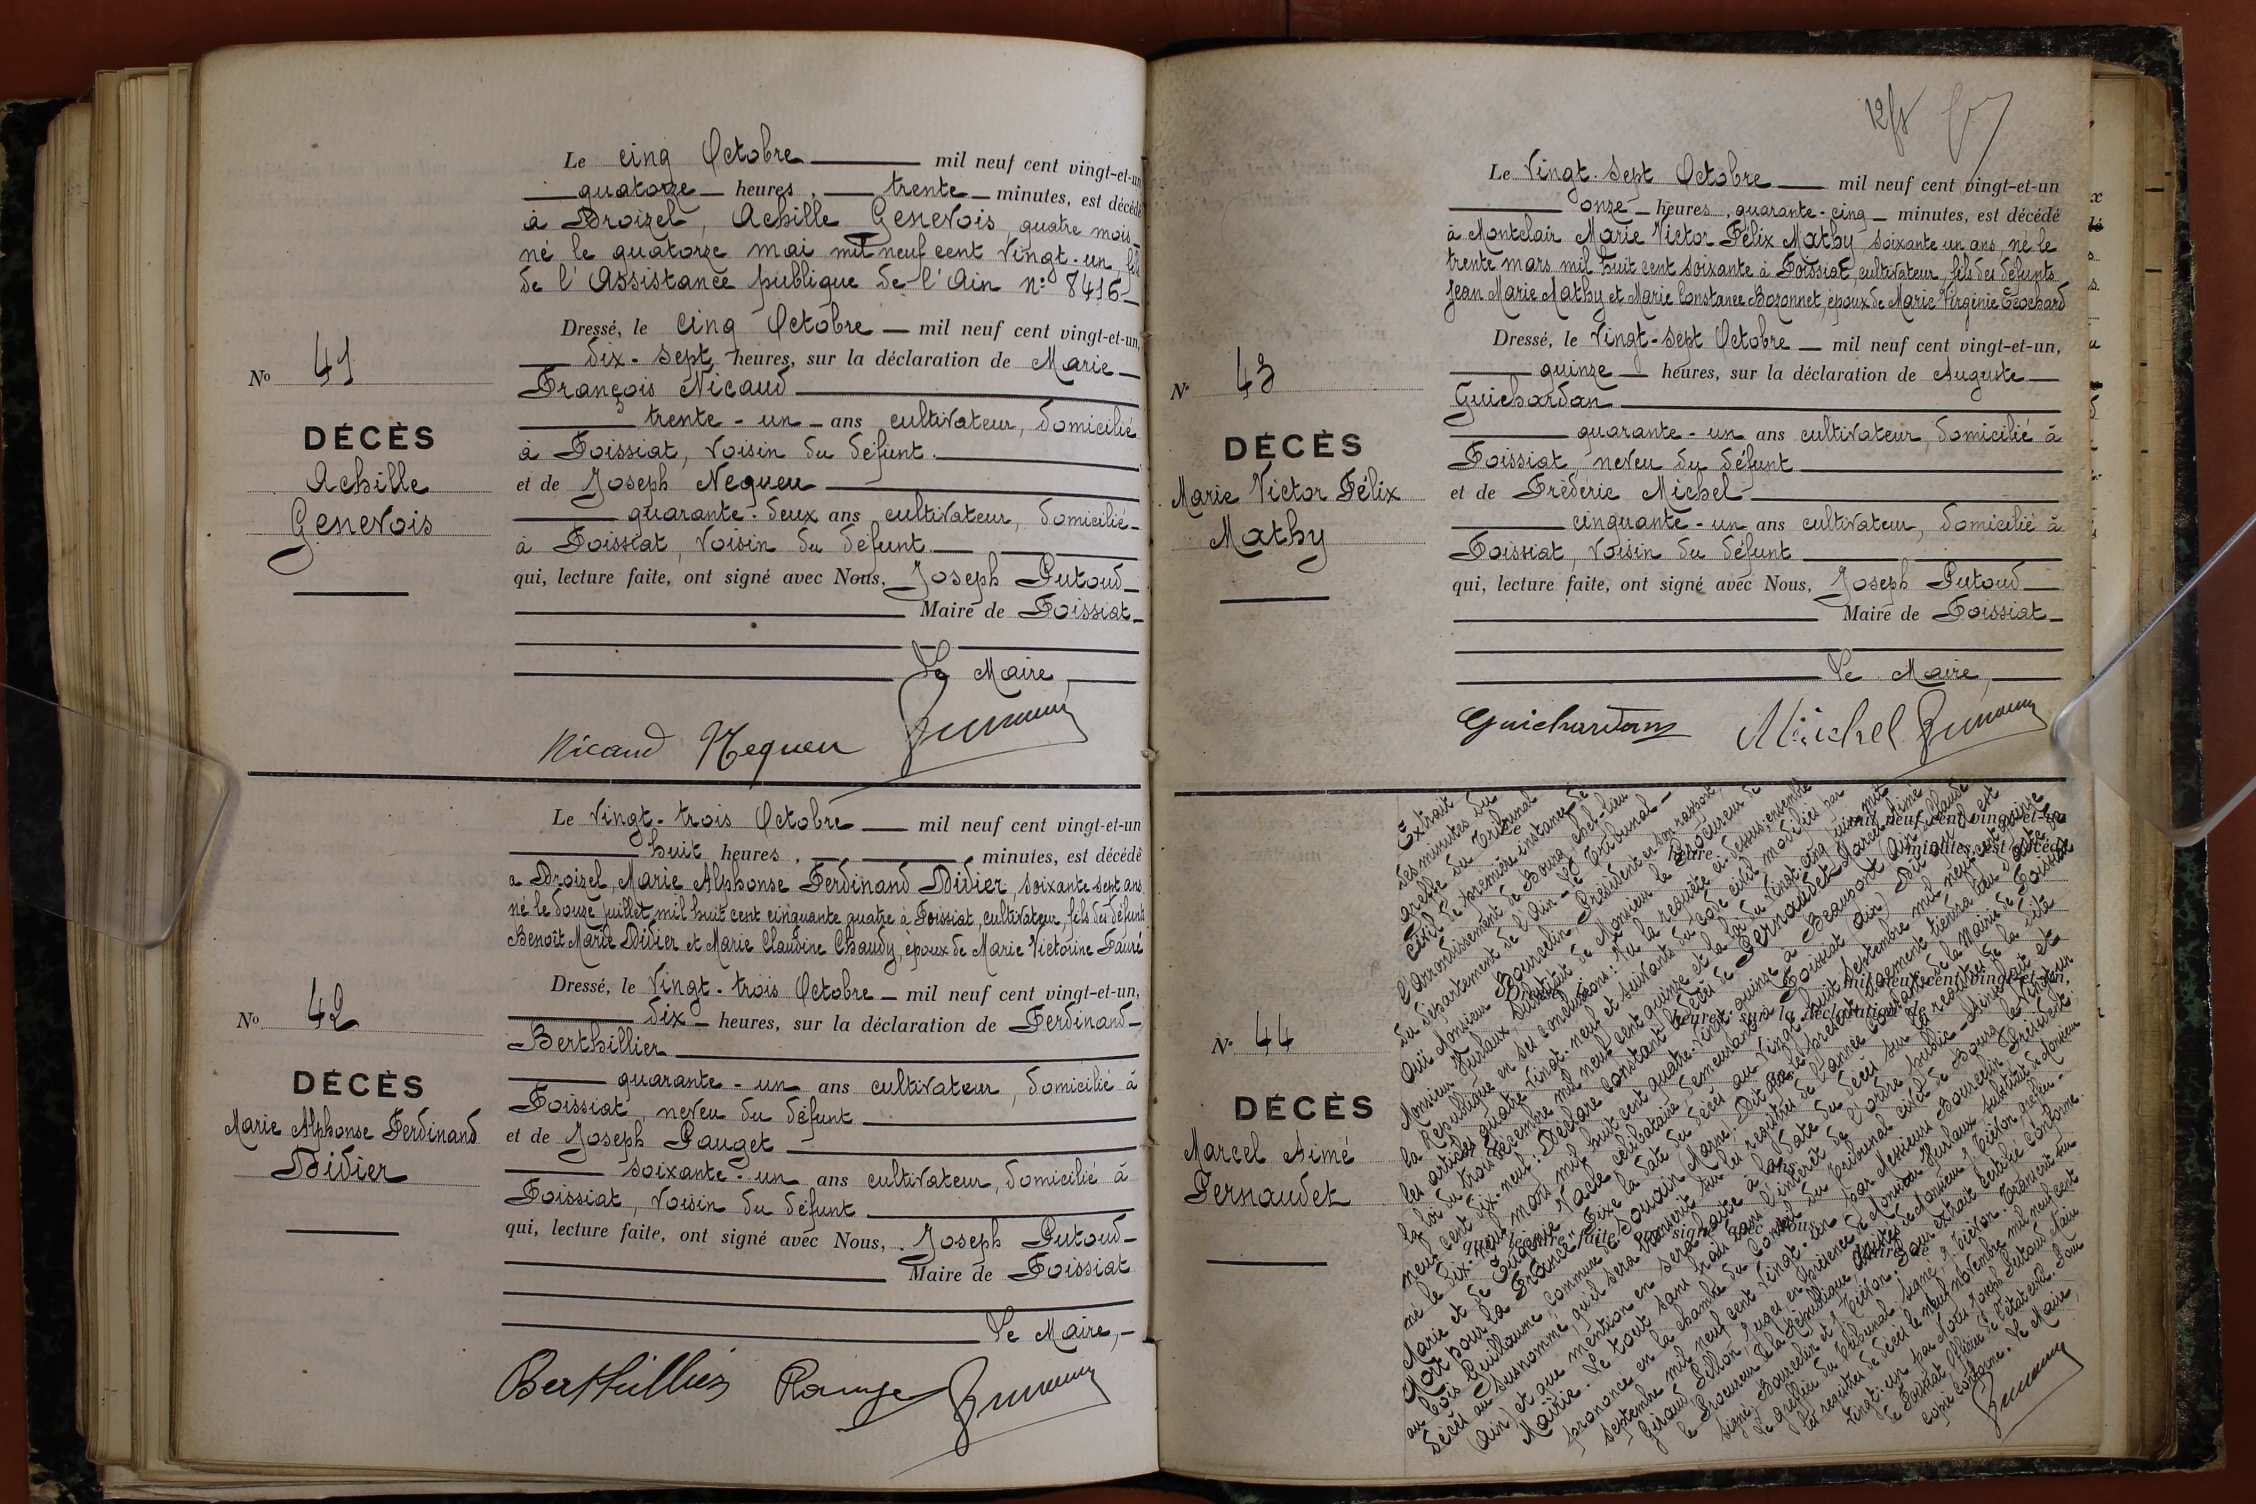 Le cinq Octobre mil neuf cent vingt-et-un
quatorze heures, trente minutes, est décédé
à Broizel, Achille Genevois, quatre mois
né le quatorze mai mil neuf cent vingt-un, fils
de l'Assistance publique de l'Ain n° 8416
Dressé, le cinq Octobre mil neuf cent vingt-et-un,
dix-sept heures, sur la déclaration de Marie
François Nicaud
trente-un ans cultivateur, domicilié
à Foissiat, voisin du défunt
et de Joseph Nequeu
quarante-deux ans cultivateur, domicilié
à Foissiat, voisin du défunt
qui, lecture faite, ont signé avec Nous, Joseph Putoud
Maire de Foissiat
Le Maire,
Nicaud Nequeu
No 41
DÉCÈS
Achille
Genevois
Le vingt-trois Octobre mil neuf cent vingt-et-un
huit heures, minutes, est décédé
a Broizel, Marie Alphonse Ferdinand Didier, soixante sept ans,
né le douze juillet mil huit cent cinquante quatre à Foissiat, cultivateur, fils des défunts
Benoît Marie Didier et Marie Claudine Chaudy, époux de Marie Victorine Fauré
Dressé, le vingt-trois Octobre mil neuf cent vingt-et-un,
dix heures, sur la déclaration de Ferdinand
Berthillier
quarante-un ans cultivateur, domicilié à
Foissiat, neveu du défunt
et de Joseph Pauget
soixante-un ans cultivateur, domicilié à
Foissiat, voisin du défunt
qui, lecture faite, ont signé avec Nous, Joseph Putoud
Maire de Foissiat
Le Maire,
Berthillier
No 42
DÉCÈS
Marie Alphonse Ferdinand
Didier
Le vingt-sept Octobre mil neuf cent vingt-et-un
onze heures, quarante-cinq minutes, est décédé
à Montclair Marie Victor Félix Mathy, soixante un ans, né le
trente mars mil huit cent soixante à Foissiat, cultivateur, fils des défunts
Jean Marie Mathy et Marie Constance Boronnet, époux de Marie Virginie
Dressé, le vingt-sept Octobre mil neuf cent vingt-et-un,
quinze heures, sur la déclaration de Auguste
Guichardan
quarante-un ans cultivateur, domicilié à
Foissiat, neveu du défunt
et de Frédéric Michel
cinquante-un ans cultivateur, domicilié à
Foissiat, voisin du défunt
qui, lecture faite, ont signé avec Nous, Joseph Putoud
Maire de Foissiat
Le Maire,
Guichardan Michel
No 43
DÉCÈS
Marie Victor Félix
Mathy
No 44
DÉCÈS
Marcel Aimé
Pernaudet
Extrait
des minutes du
greffe du Tribunal
civil de première instance de
l'arrondissement de Bourg, chef-lieu
du département de l'Ain - Le Tribunal
Ouï Monsieur Bourcelin Président en son rapport,
Monsieur Hurlaux, Substitut de Monsieur le Procureur de
la République en ses conclusions: Vu la requête ci-dessus, ensemble
les articles quatre-vingt-neuf et suivants du code civil modifiés par
la loi du trois décembre mil neuf cent quinze et la loi du vingt-cinq juin mil
neuf cent dix-neuf: Déclare constant le décès de Pernaudet Marcel Aimé
né le dix-neuf mars mil huit cent quatre-vingt-quinze à Beaupont (Ain) de Claude
Marie et de Eugénie Vacle célibataire demeurant à Foissiat (Ain) Dit qu'il est
"Mort pour la France". Fixe la date du décès au vingt-huit septembre mil neuf cent quinze
au bois Guillaume, commune de Souain Marne. Dit que le présent jugement tiendra lieu d'acte de
décès au susnommé, qu'il sera transcrit sur les registres de l'année courante de la Mairie de Foissiat
(Ain) et que mention en sera faite à la date du décès sur les registres de la dite
Mairie. Le tout sans frais dans l'intérêt de l'ordre public. Ainsi fait et
prononcé en la chambre du Conseil du Tribunal civil de Bourg le vingt-deux
septembre mil neuf cent vingt-un par Messieurs Bourcelin Président;
Giraud, Sillon, Juges, en présence de Monsieur Hurlaux substitut de Monsieur
le Procureur de la République, assistés de Monsieur J. Piéron, greffier.
Signé, Bourcelin et J. Piéron. Pour extrait certifié conforme.
Le greffier du Tribunal, signé, J. Piéron. Transcrit sur
les registres de décès le neuf novembre mil neuf cent
vingt-un par Nous Joseph Putoud Maire
de Foissiat Officier de l'état civil. Pour
copie conforme. Le Maire,